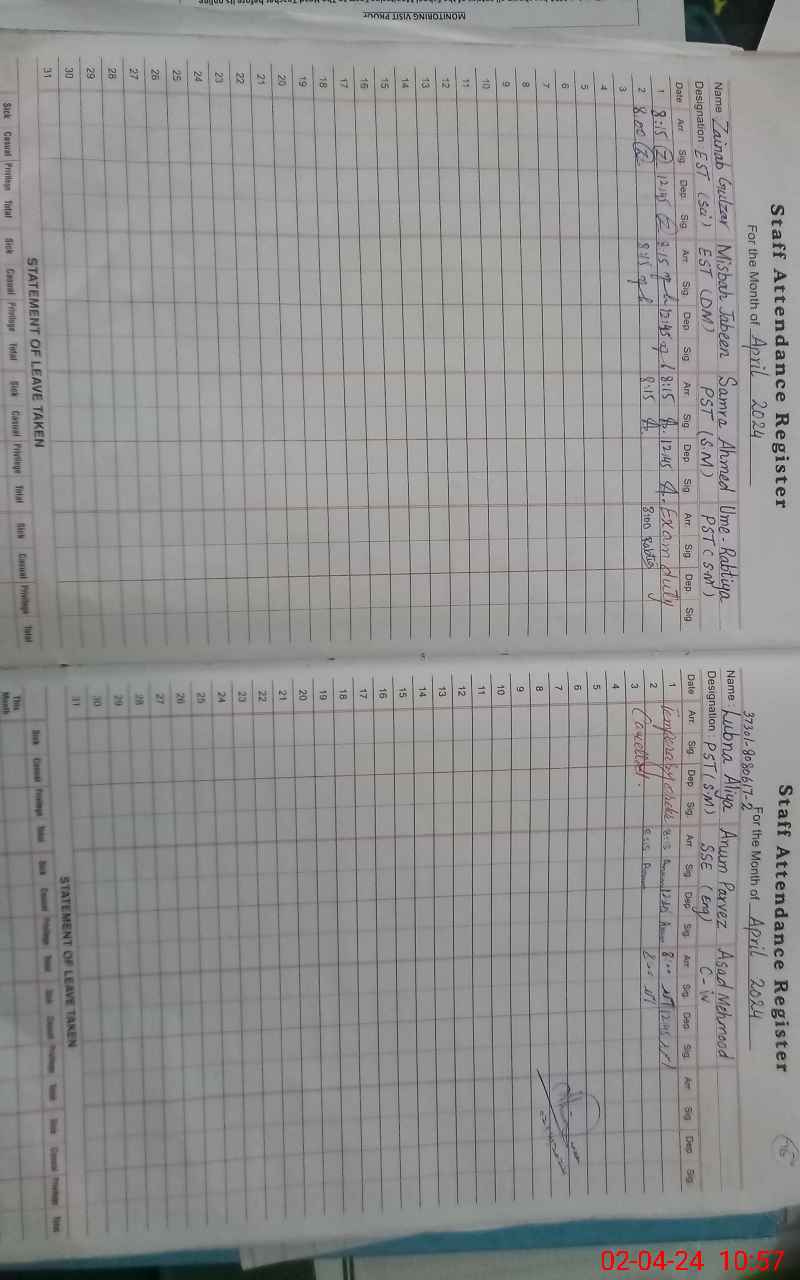 MONITORING VISIT
Staff Attendance Register
For the Month of April 2024
Name Zainab Gulzar Misbah Jabeen Samra Ahmed Ume-Rabtiya
Designation EST (Sci) EST (DM) PST (S.M) PST (S.M)
Date Arr. Sig. Dep. Sig. Arr. Sig. Dep. Sig. Arr. Sig. Dep. Sig. Arr. Sig. Dep. Sig.
1 8:15 12:45 8:15 12:45 8:15 12:45 Exam duty
2 8:00 8:15 8:15 8:00 Rabtia
3
4
5
6
7
8
9
10
11
12
13
14
15
16
17
18
19
20
21
22
23
24
25
26
27
28
29
30
31
STATEMENT OF LEAVE TAKEN
Sick Casual Privilege Total Sick Casual Privilege Total Sick Casual Privilege Total Sick Casual Privilege Total
Staff Attendance Register
For the Month of April 2024
37301-8080617-2
Name: Lubna Aliya Anum Parvez Asad Mehmood
Designation: PST (S.M) SSE (Eng) C-iv
Date Arr. Sig. Dep. Sig. Arr. Sig. Dep. Sig. Arr. Sig. Dep. Sig. Arr. Sig. Dep. Sig.
1 8:15 12:45 8:00 12:45
2 8:15 8:00
3
4
5
6
7
8
9
10
11
12
13
14
15
16
17
18
19
20
21
22
23
24
25
26
27
28
29
30
31
STATEMENT OF LEAVE TAKEN
Sick Casual Privilege Total Sick Casual Privilege Total Sick Casual Privilege Total Sick Casual Privilege Total
This Month
02-04-24 10:57